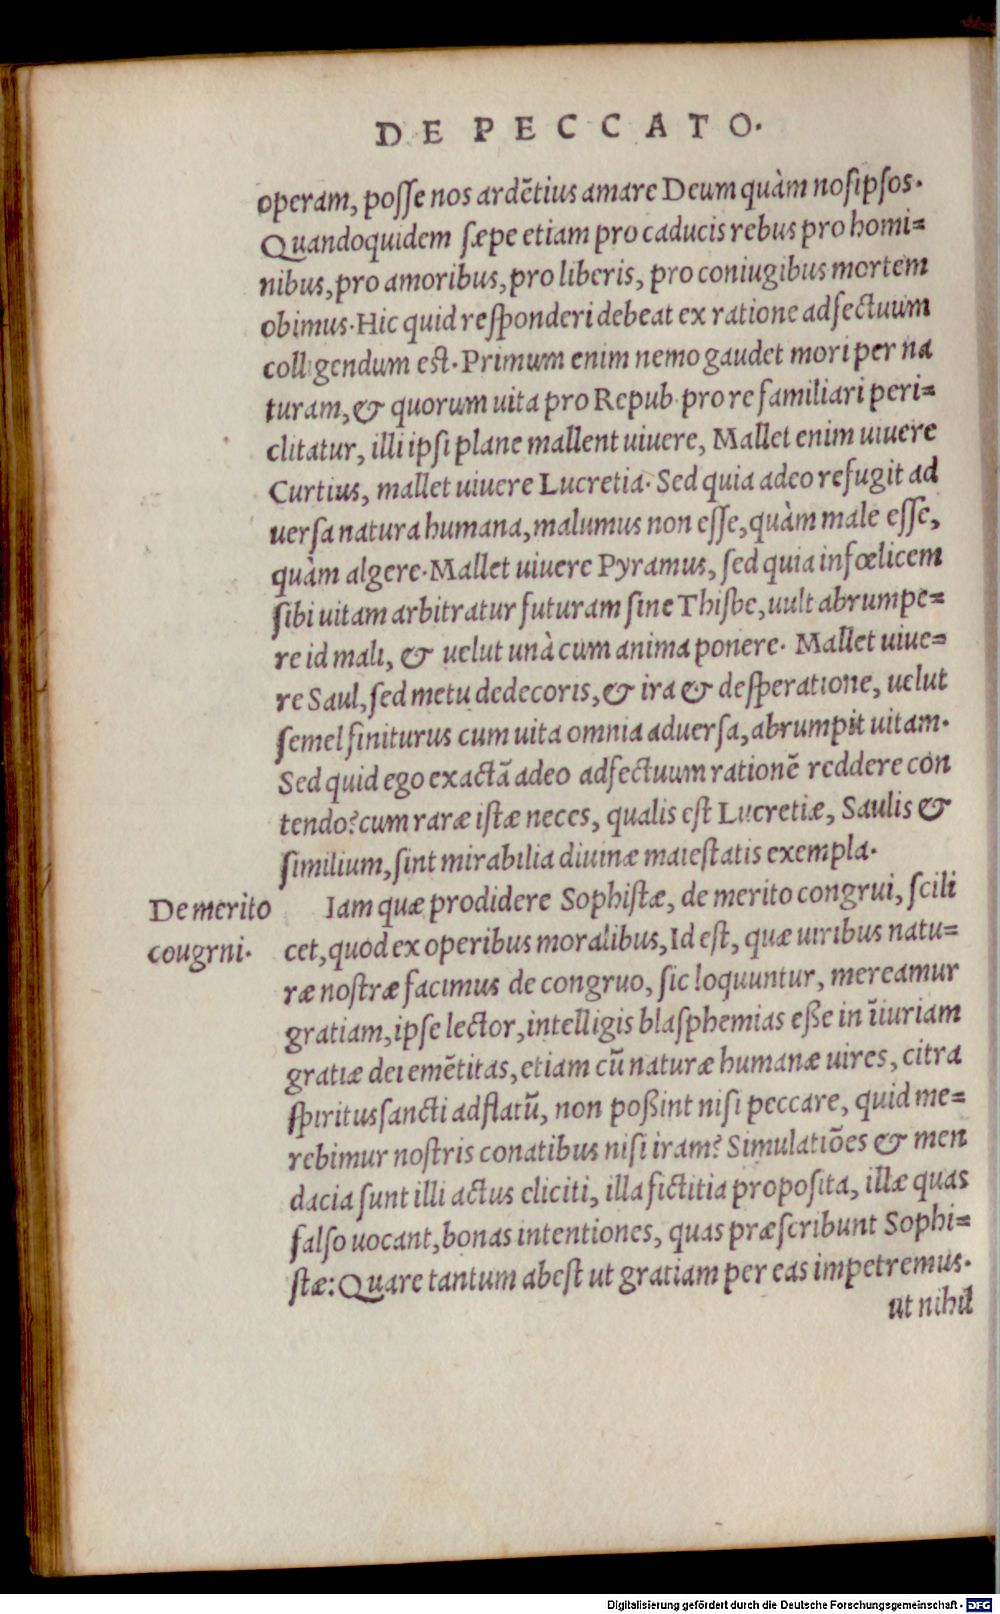 DE PECCATO.
operam, posse nos ardẽtius amare Deum quàm nosipsos.
Quandoquidem sæpe etiam pro caducis rebus pro homi=
nibus, pro amoribus, pro liberis, pro coniugibus mortem
obimus. Hic quid responderi debeat ex ratione adfectuum
colligendum est. Primum enim nemo gaudet mori per na
turam, & quorum uita pro Repub. pro re familiari peri=
clitatur, illi ipsi plane mallent uiuere, Mallet enim uiuere
Curtius, mallet uiuere Lucretia. Sed quia adeo refugit ad
uersa natura humana, malumus non esse, quàm male esse,
quàm algere. Mallet uiuere Pyramus, sed quia infœlicem
sibi uitam arbitratur futuram sine Thisbe, uult abrumpe=
re id mali, & uelut unà cum anima ponere. Mallet uiue=
re Saul, sed metu dedecoris, & ira & desperatione, uelut
semel finiturus cum uita omnia aduersa, abrumpit uitam.
Sed quid ego exactã adeo adfectuum rationẽ reddere con
tendo? cum raræ istæ neces, qualis est Lucretiæ, Saulis &
similium, sint mirabilia diuinæ maiestatis exempla.
De merito
cougrni.
Iam quæ prodidere Sophistæ, de merito congrui, scili
cet, quod ex operibus moralibus, Id est, quæ uiribus natu=
ræ nostræ facimus de congruo, sic loquuntur, mereamur
gratiam, ipse lector, intelligis blasphemias eße in ĩiuriam
gratiæ dei emẽtitas, etiam cũ naturæ humanæ uires, citra
spiritus sancti adflatũ, non poßint nisi peccare, quid me=
rebimur nostris conatibus nisi iram? Simulatiões & men
dacia sunt illi actus eliciti, illa fictitia proposita, illæ quas
falso uocant, bonas intentiones, quas præscribunt Sophi=
stæ: Quare tantum abest ut gratiam per eas impetremus.
ut nihil
Digitalisierung gefördert durch die Deutsche Forschungsgemeinschaft - DFG